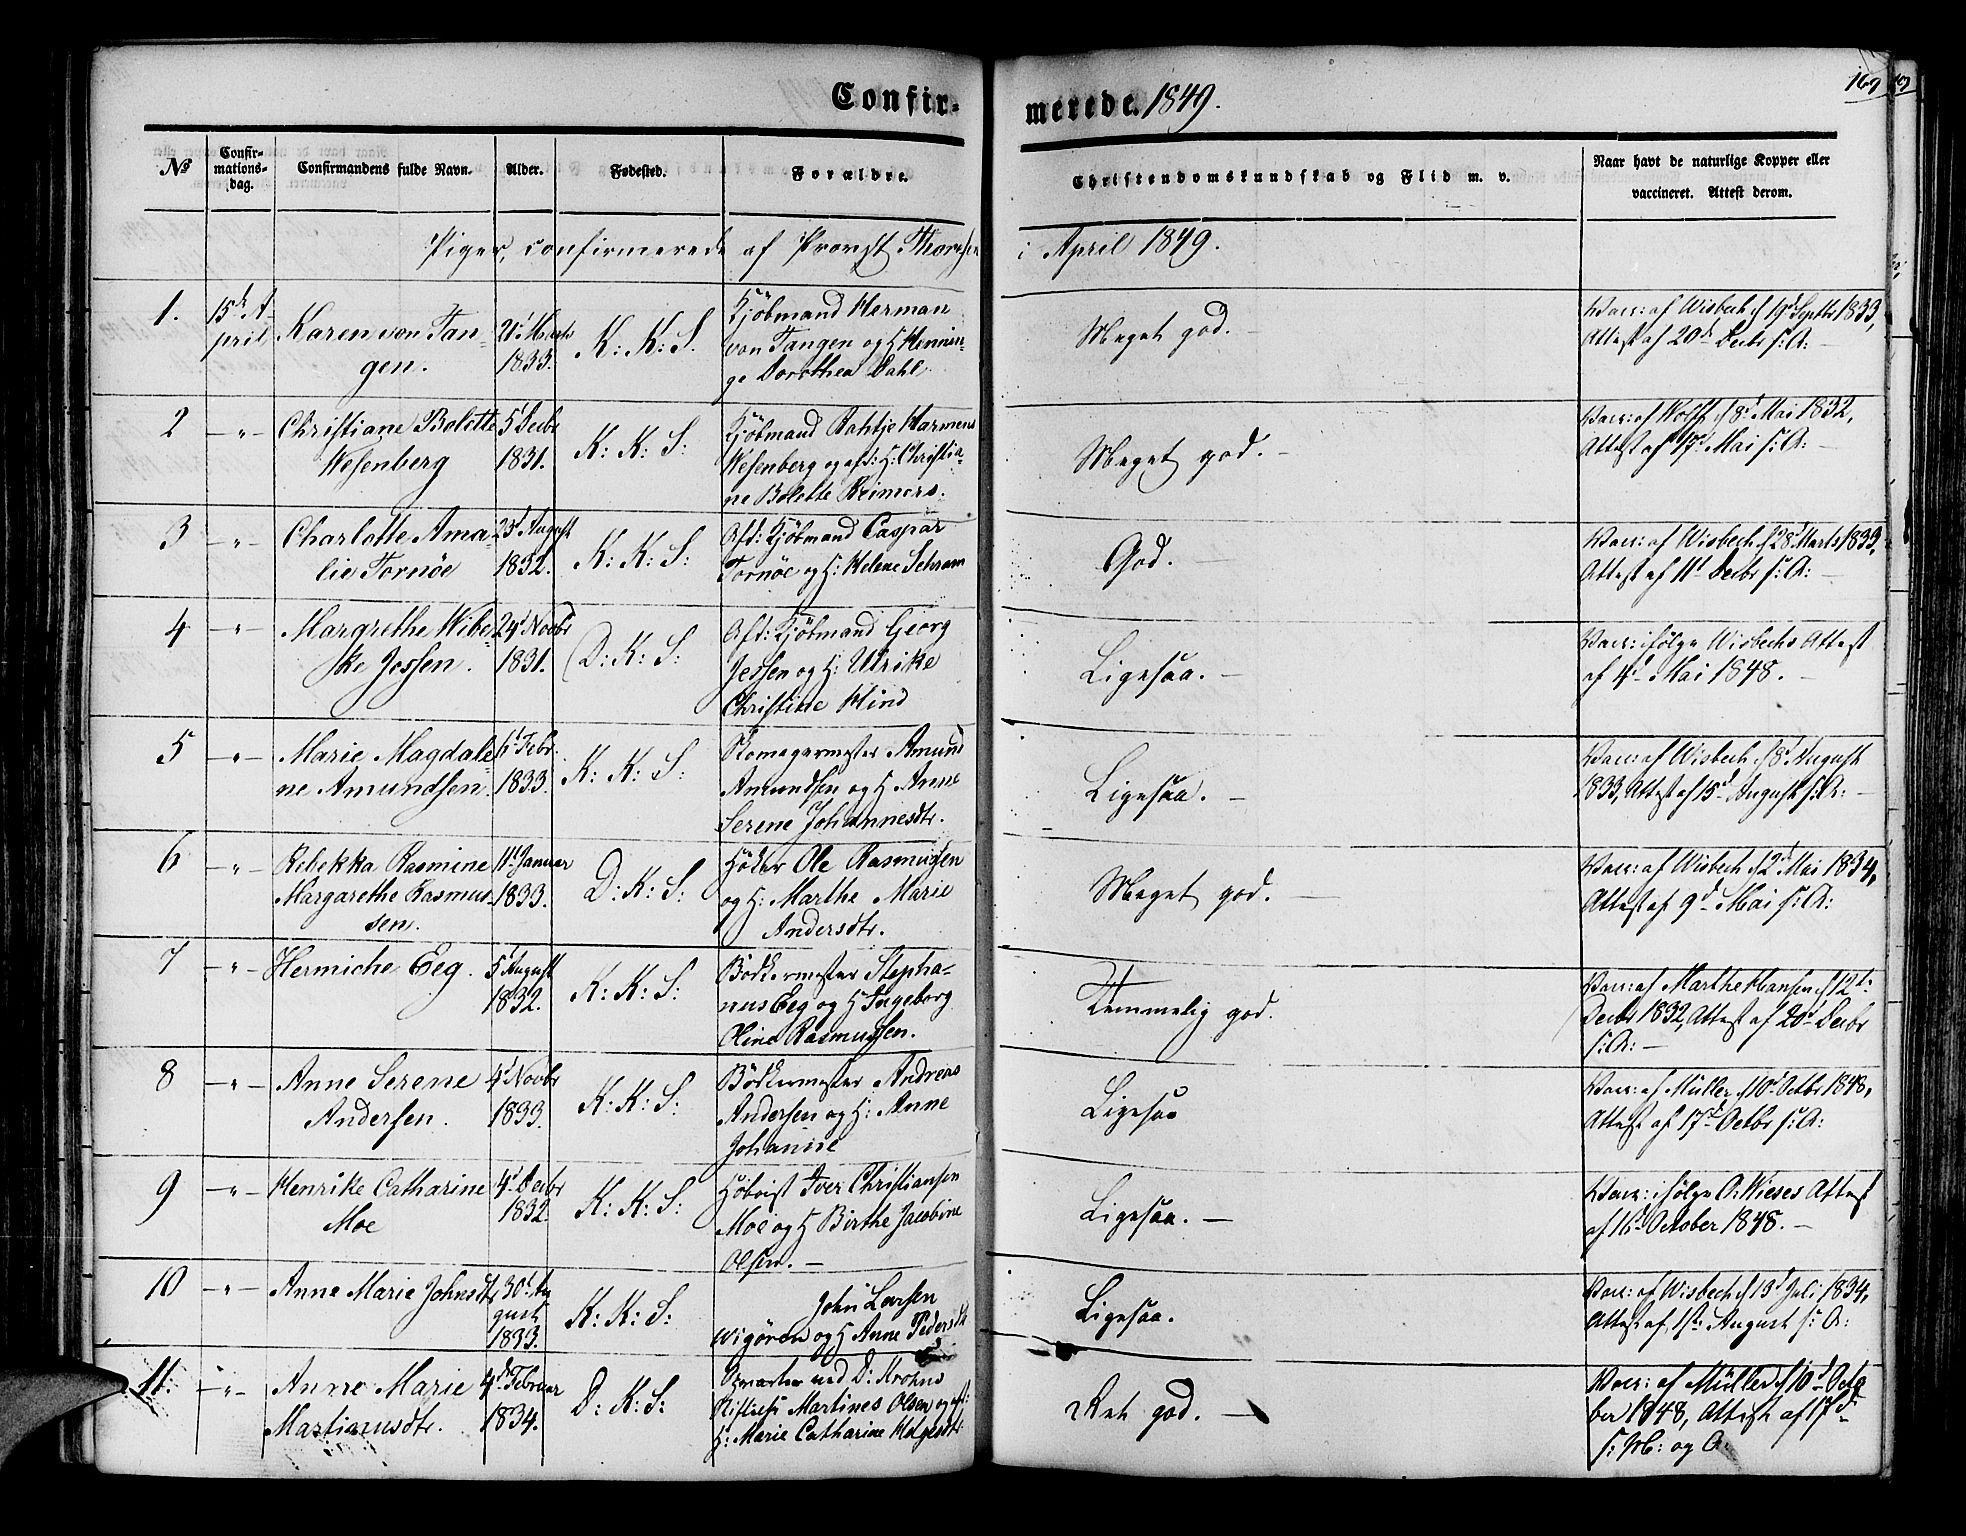 Confir-
merede. 1849.
169
No
Confir-
mations-
dag.
Confirmandens fulde Navn.
Alder.
Fødested.
Forældre.
Christendomskundskab og Flid m. v.
Naar havt de naturlige Kopper eller
vaccineret. Attest derom.
Piger, confirmerede af Provst Thornsen i April 1849.
1.
15d A-
pril
Karen von Tan-
gen.
21d Marts
1833.
K: K: S.
Kjöbmand Herman
von Tangen og H Hennin-
ge Dorothea Dahl
Meget god.
Vacc: af Wisbech d 19d Septbr 1833,
Attest af 20d Decbr s: A: -
2
-"-
Christiane Bolette
Wesenberg
5d Decbr
1831.
K: K: S:
Kjöbmand Harmens
Wesenberg og afd: H: Christia-
ne Bolette Reimers.
Meget god. -
Vacc: af Wolff d 8d Mai 1832,
Attest af 17d Mai s: A: -
3
-"-
Charlotte Ama-
lie Tornöe
23d August
1832.
K: K: S:
Afd: Kjöbmand Caspar
Tornöe og H: Helene Schram
God. -
Vacc: af Wisbech d 28d Marts 1833,
Attest af 11d Decbr s: A: -
4
-"-
Margrethe Wibe-
ke Jessen.
24d Novbr
1831.
D: K: S:
Afd: Kjöbmand Georg
Jessen og H: Ulrike
Christine Hind
Ligesaa. -
Vacc: ifölge Wisbechs Attest
af 4d Mai 1848. -
5
-"-
Marie Magdale-
ne Amundsen.
6d Febr.
1833.
K: K: S:
Skomagermester Amund
Amundsen og H Anne
Serene Johannesdtr.
Ligesaa. -
Vacc: af Wisbech d 8d August
1833, Attest af 15d August s: A: -
6
-"-
Rebekka Rasmine
Margarethe Rasmus-
sen.
11d Januar
1833.
D: K: S:
Höker Ole Rasmussen
og H: Marthe Marie
Andersdtr.
Meget god. -
Vacc: af Wisbech d 2d Mai 1834,
Attest af 9d Mai s: A:
7
-"-
Hermiche Eeg.
5d August
1832.
K: K: S:
Bödkermester Stepha-
nus Eeg og H Ingeborg
Oline Rasmussen.
Temmelig god.
Vacc: af Marthe Hansen d 12d:
Decbr 1832, Attest af 20d Decbr
s: A: -
8
-"-
Anne Serene
Andersen.
4d Novbr
1833.
K: K: S:
Bödkermester Andreas
Andersen og H: Anne
Johanne
Ligesaa
Vacc: af Müller d 10d Octbr 1848,
Attest af 17d Octbr s: A:
9
-"-
Henrike Catharine
Moe
4d Decbr
1832.
K: K: S:
Iver Christiansen
Moe og H Birthe Jacobine
Olsen. -
Ligesaa. -
Vacc: ifölge O: Wieses Attest
af 16d October 1848. -
10
-"-
Anne Marie Johnsdtr
30d Au
gust
1833.
K: K: S:
John Larsen
Wigören og H Anne Pedersdtr
Ligesaa.
Vacc: af Wisbech d 13d Juli 1834,
Attest af 1ste August s: A:
11.
-"-
Anne Marie
Martinusdtr.
4d Februar
1834.
D: K: S:
Opvarter ved D: Krohns
Stiftelse Martines Olsen og afd:
H: Marie Catharine Helgesdtr
Ret god. -
Vacc: af Müller d 10d Octo
ber 1848, Attest af 17d
s: M: og A: